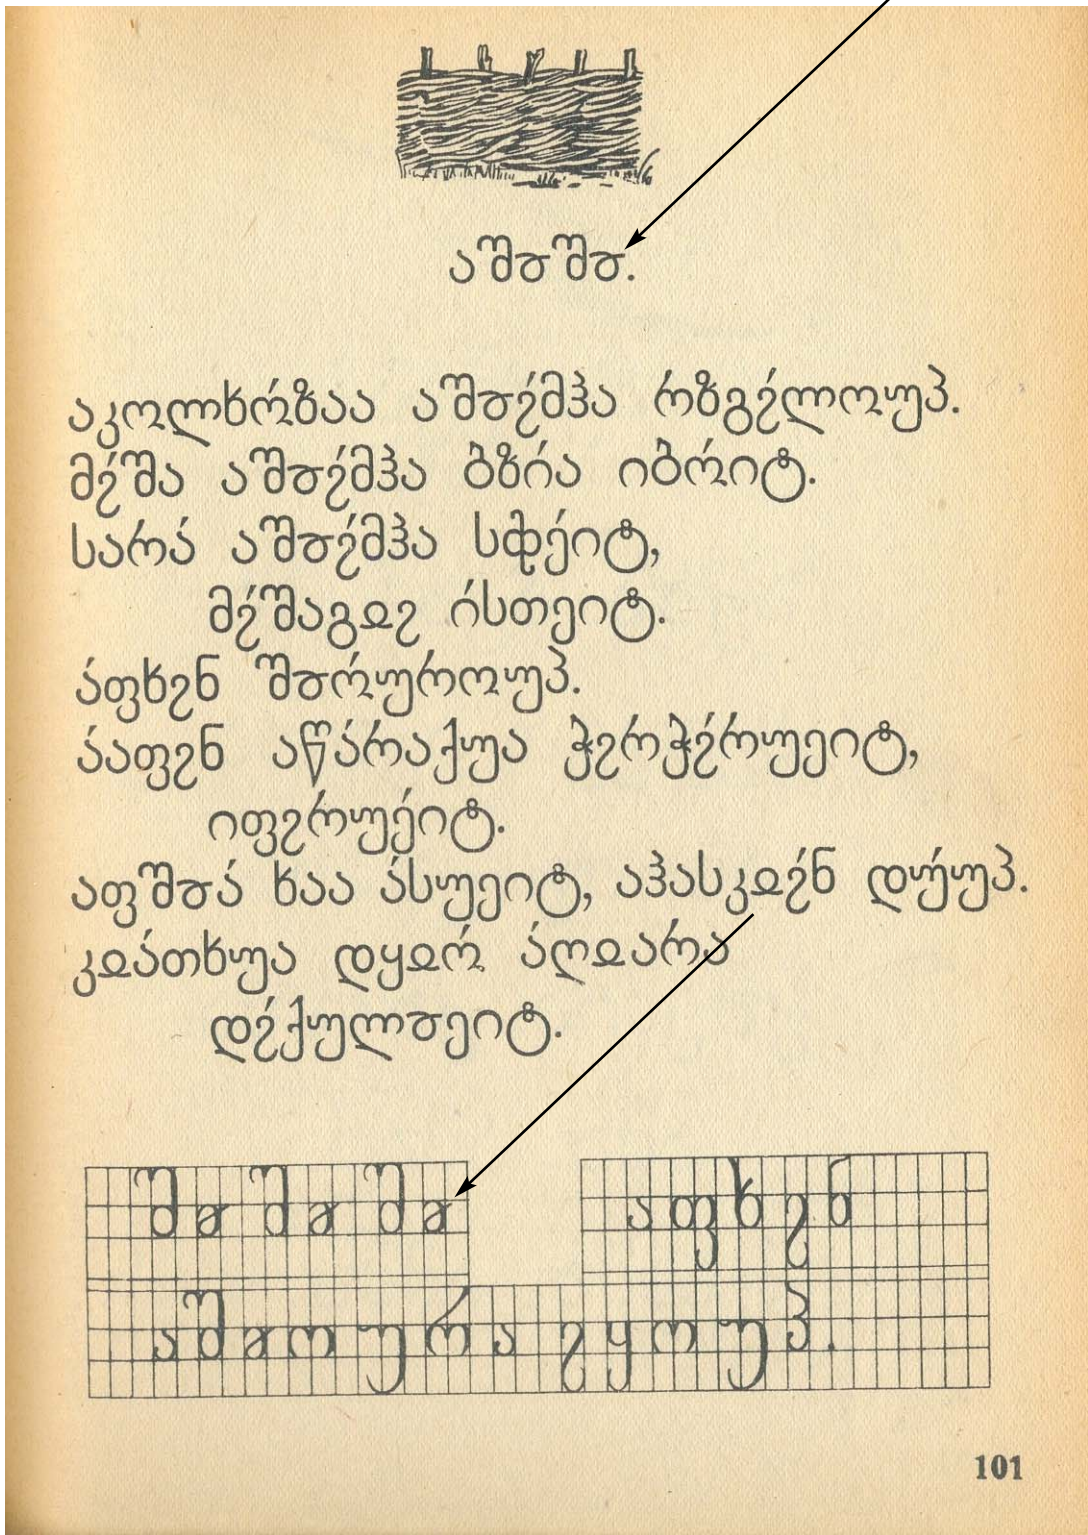 აშჿშჿ.
აკოლხო́ზაა აშჿჷ́მჰა რზგჷ́ლოუპ.
მჷ́შა აშჿჷ́მჰა ბზი́ა იბო́იტ.
სარა́ აშჿჷ́მჰა სჶე́იტ,
მჷ́შაგჲჷ ი́სთეიტ.
ა́ფხჷნ შჿო́უროუპ.
ა́აფჷნ აწა́რაქუა ჭჷრჭჷ́რუეიტ,
იფჷრუე́იტ.
აფშჿა́ ხაა ა́სუეიტ, აჰასკჲჷ́ნ დუ́უპ.
კჲა́თხუა დყჲო́ ა́ღჲარა
დჷ́ქულჿეიტ.
შჿ შჿ შჿ აფხჷნ
აშჿოურა ჷყოუპ.
101